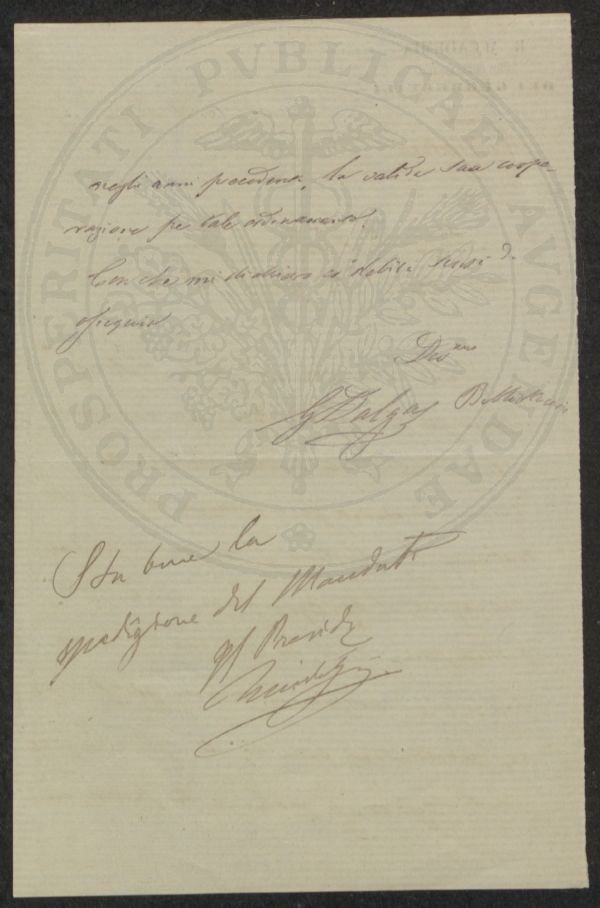 PROSPERITATI PVBLICAE AVGENDAE
negli anni precedenti, la valida sua coope-
razione per tale ordinamento.
Con che mi dichiaro co' debiti sensi d'
ossequio
Dev.mo
G Dalgas Bibliotecario
Sta bene la
spedizione del Mandato
Il Preside